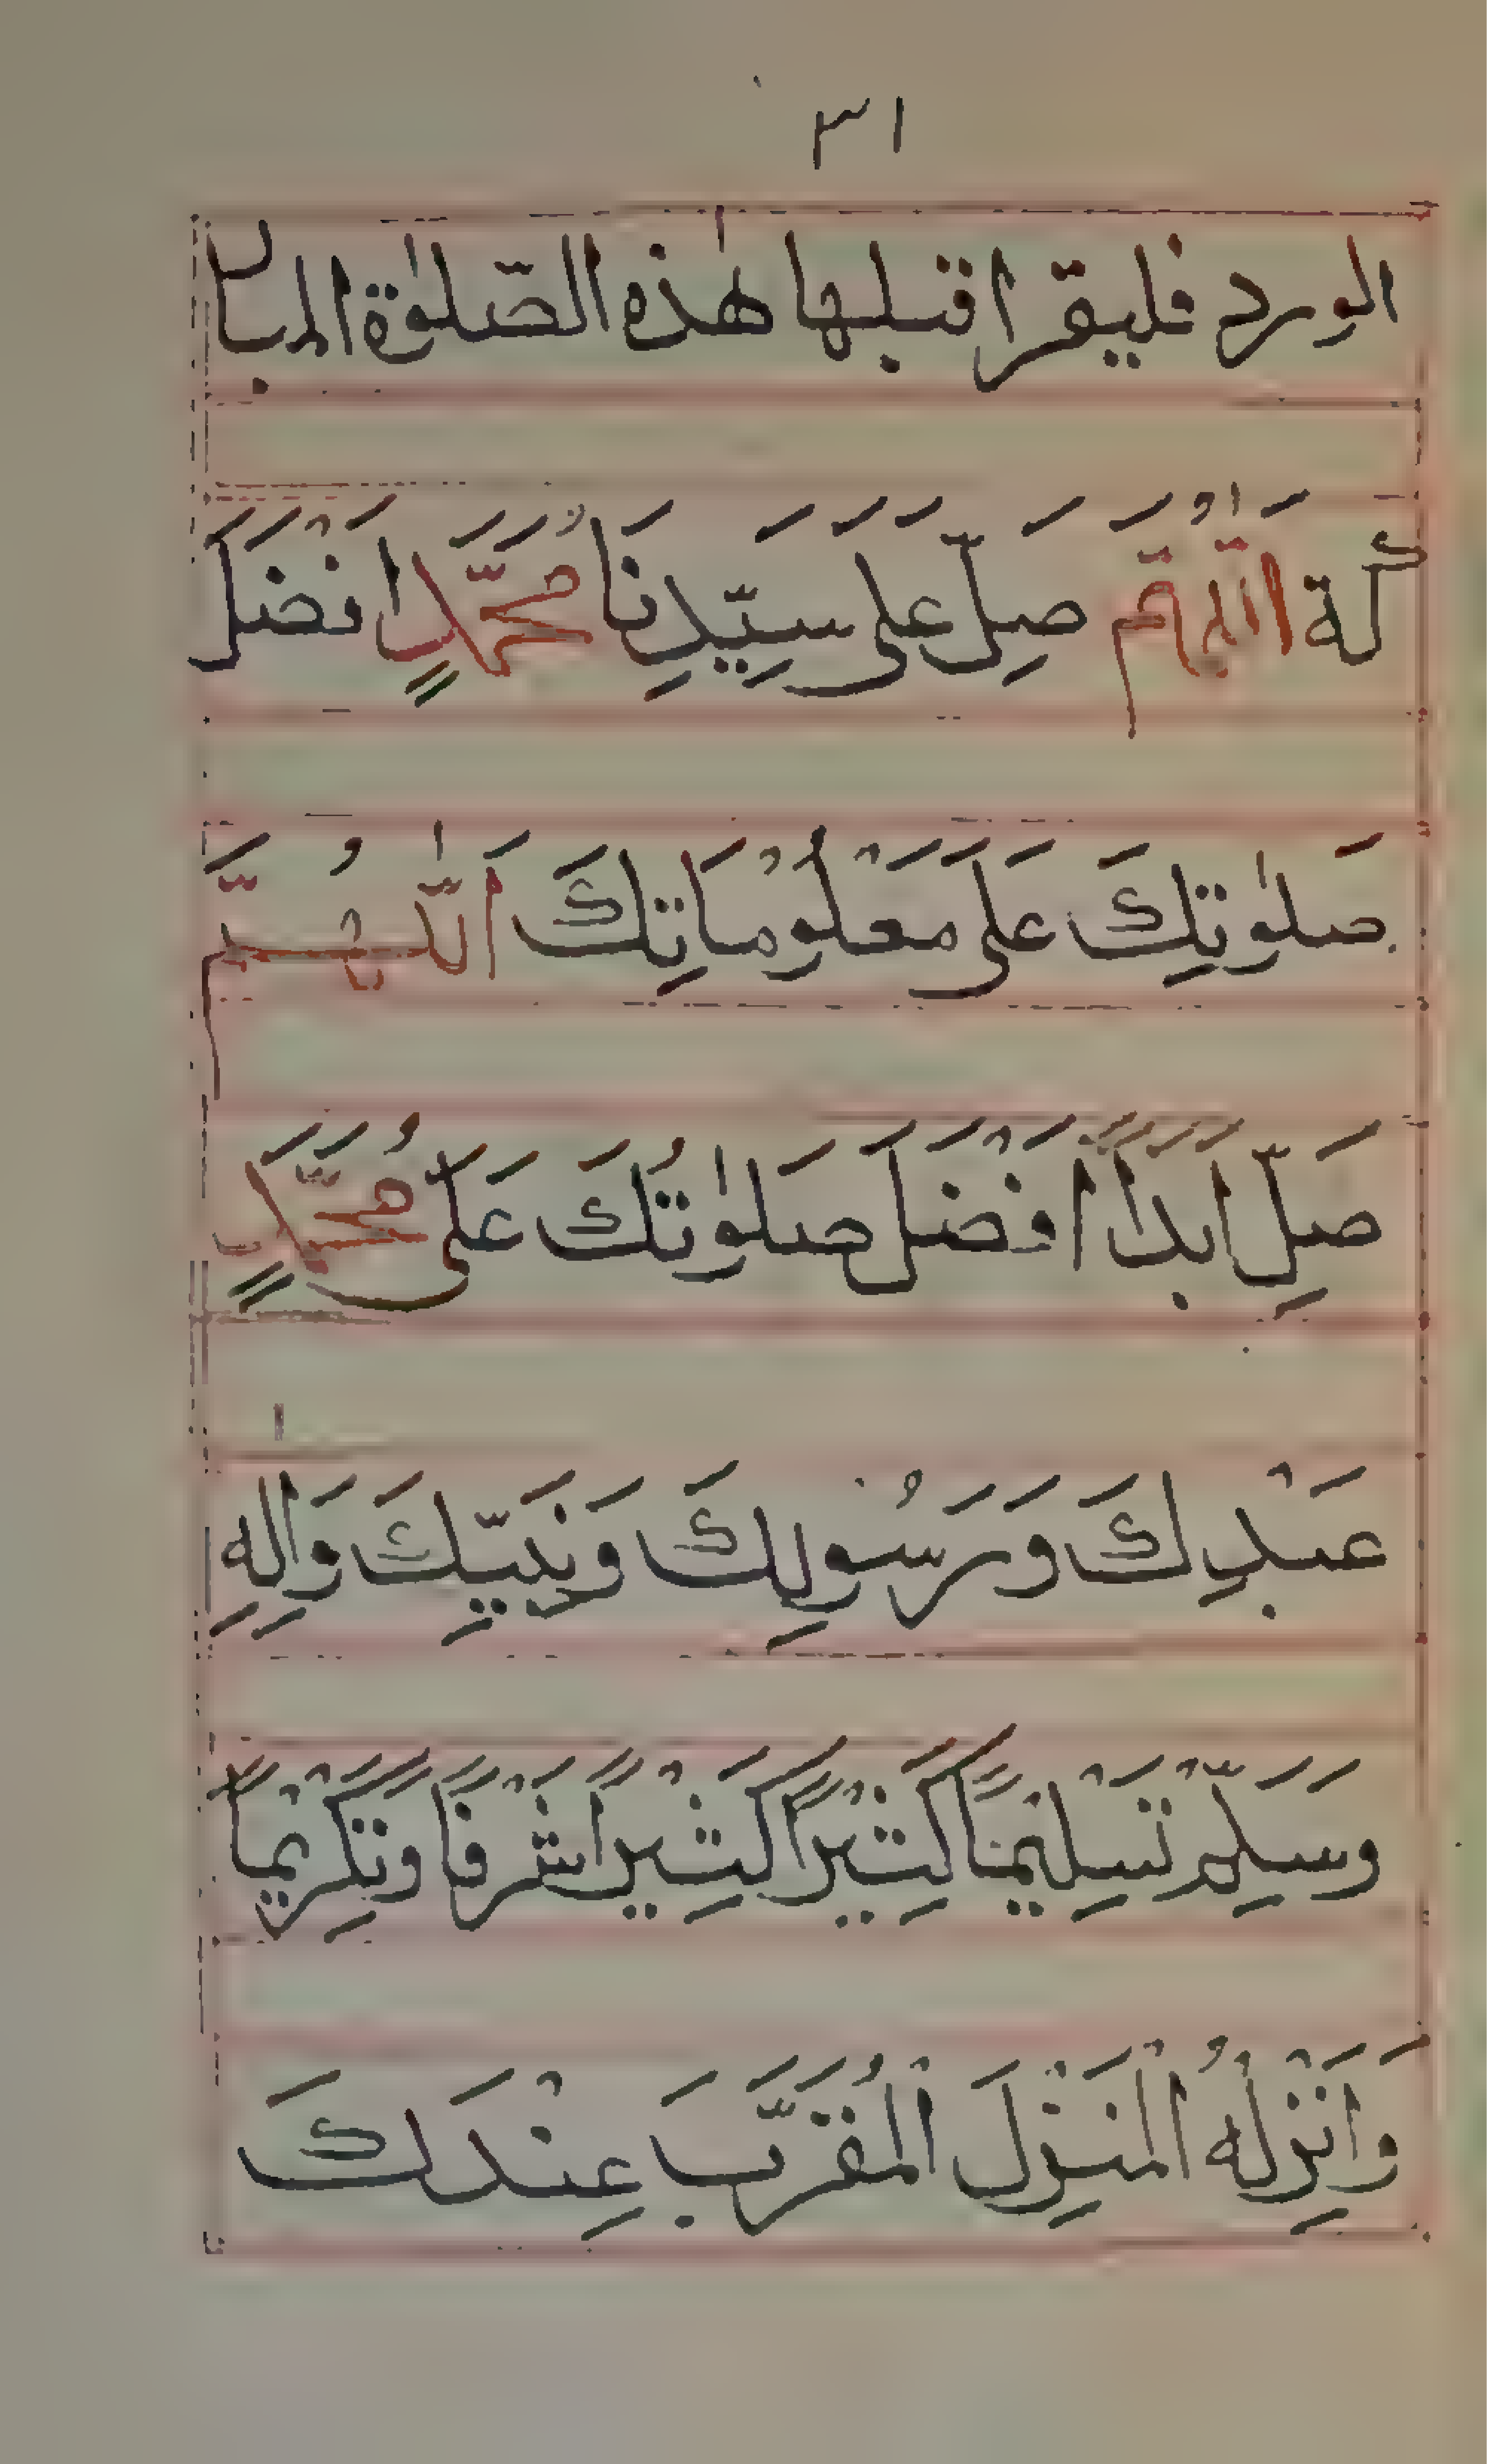 ٣١
الورد فليقرا قبلها هٰذه الصّلوٰة المبار
كة اَللّٰهُمَّ صَلِّ عَلَى سَيِّدِنَا مُحَمَّدٍ اَفْضَلَ
صَلوٰتِكَ عَلَى مَعْلُوْمَاتِكَ اَللّٰهُمَّ
صَلِّ اَبَداً اَفْضَلَ صَلوٰتُكَ عَلَى مُحَمَّدٍ
عَبْدِكَ وَرَسُولِكَ وَنَبِيِّكَ وَاٰلِهِ
وَسَلِّمْ تَسْلِيْمًا كَثِيْرًا كَثِيْرًا شَرْفًا وَتَكْرِيْمًا
وَاَنْزِلْهُ الْمَنْزِلَ الْمُقَرَّبَ عِنْدَكَ